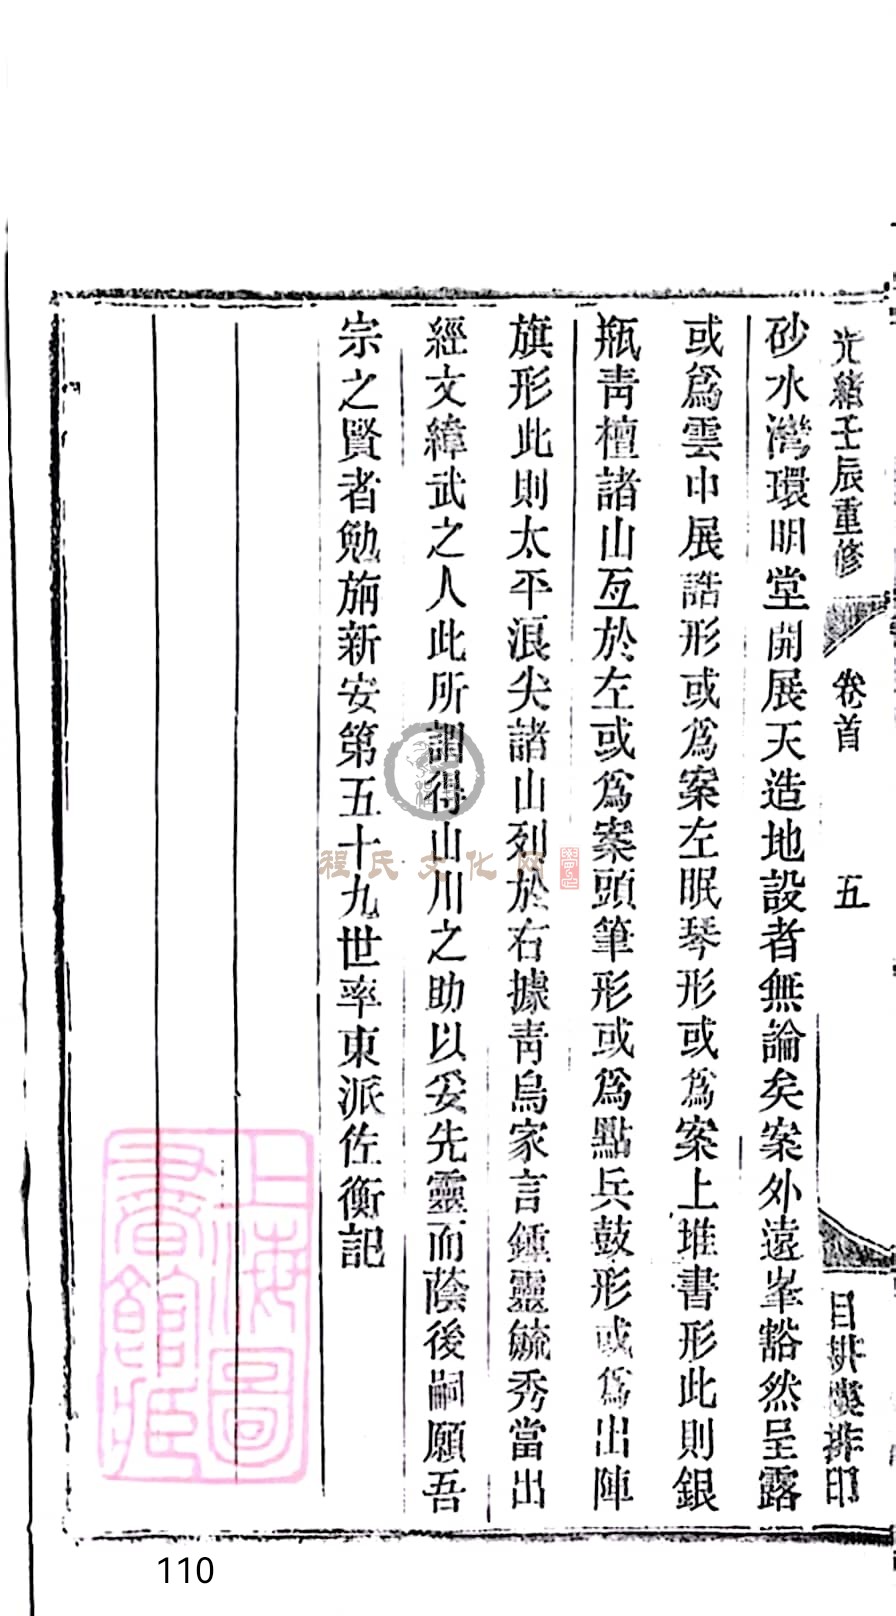 光緒壬辰重修 卷首 五 排印
砂水灣環明堂開展天造地設者無論矣案外遠峯豁然呈露
或爲雲中展誥形或爲案左眠琴形或爲案上堆書形此則銀
瓶青檀諸山亙於左或爲案頭筆形或爲點兵鼓形或爲出陣
旗形此則太平浪尖諸山列於右據青烏家言鍾靈毓秀當出
經文緯武之人此所謂得山川之助以妥先靈而蔭後嗣願吾
宗之賢者勉旃新安第五十九世率東派佐衡記
上海圖
書館藏
程氏文化网
110